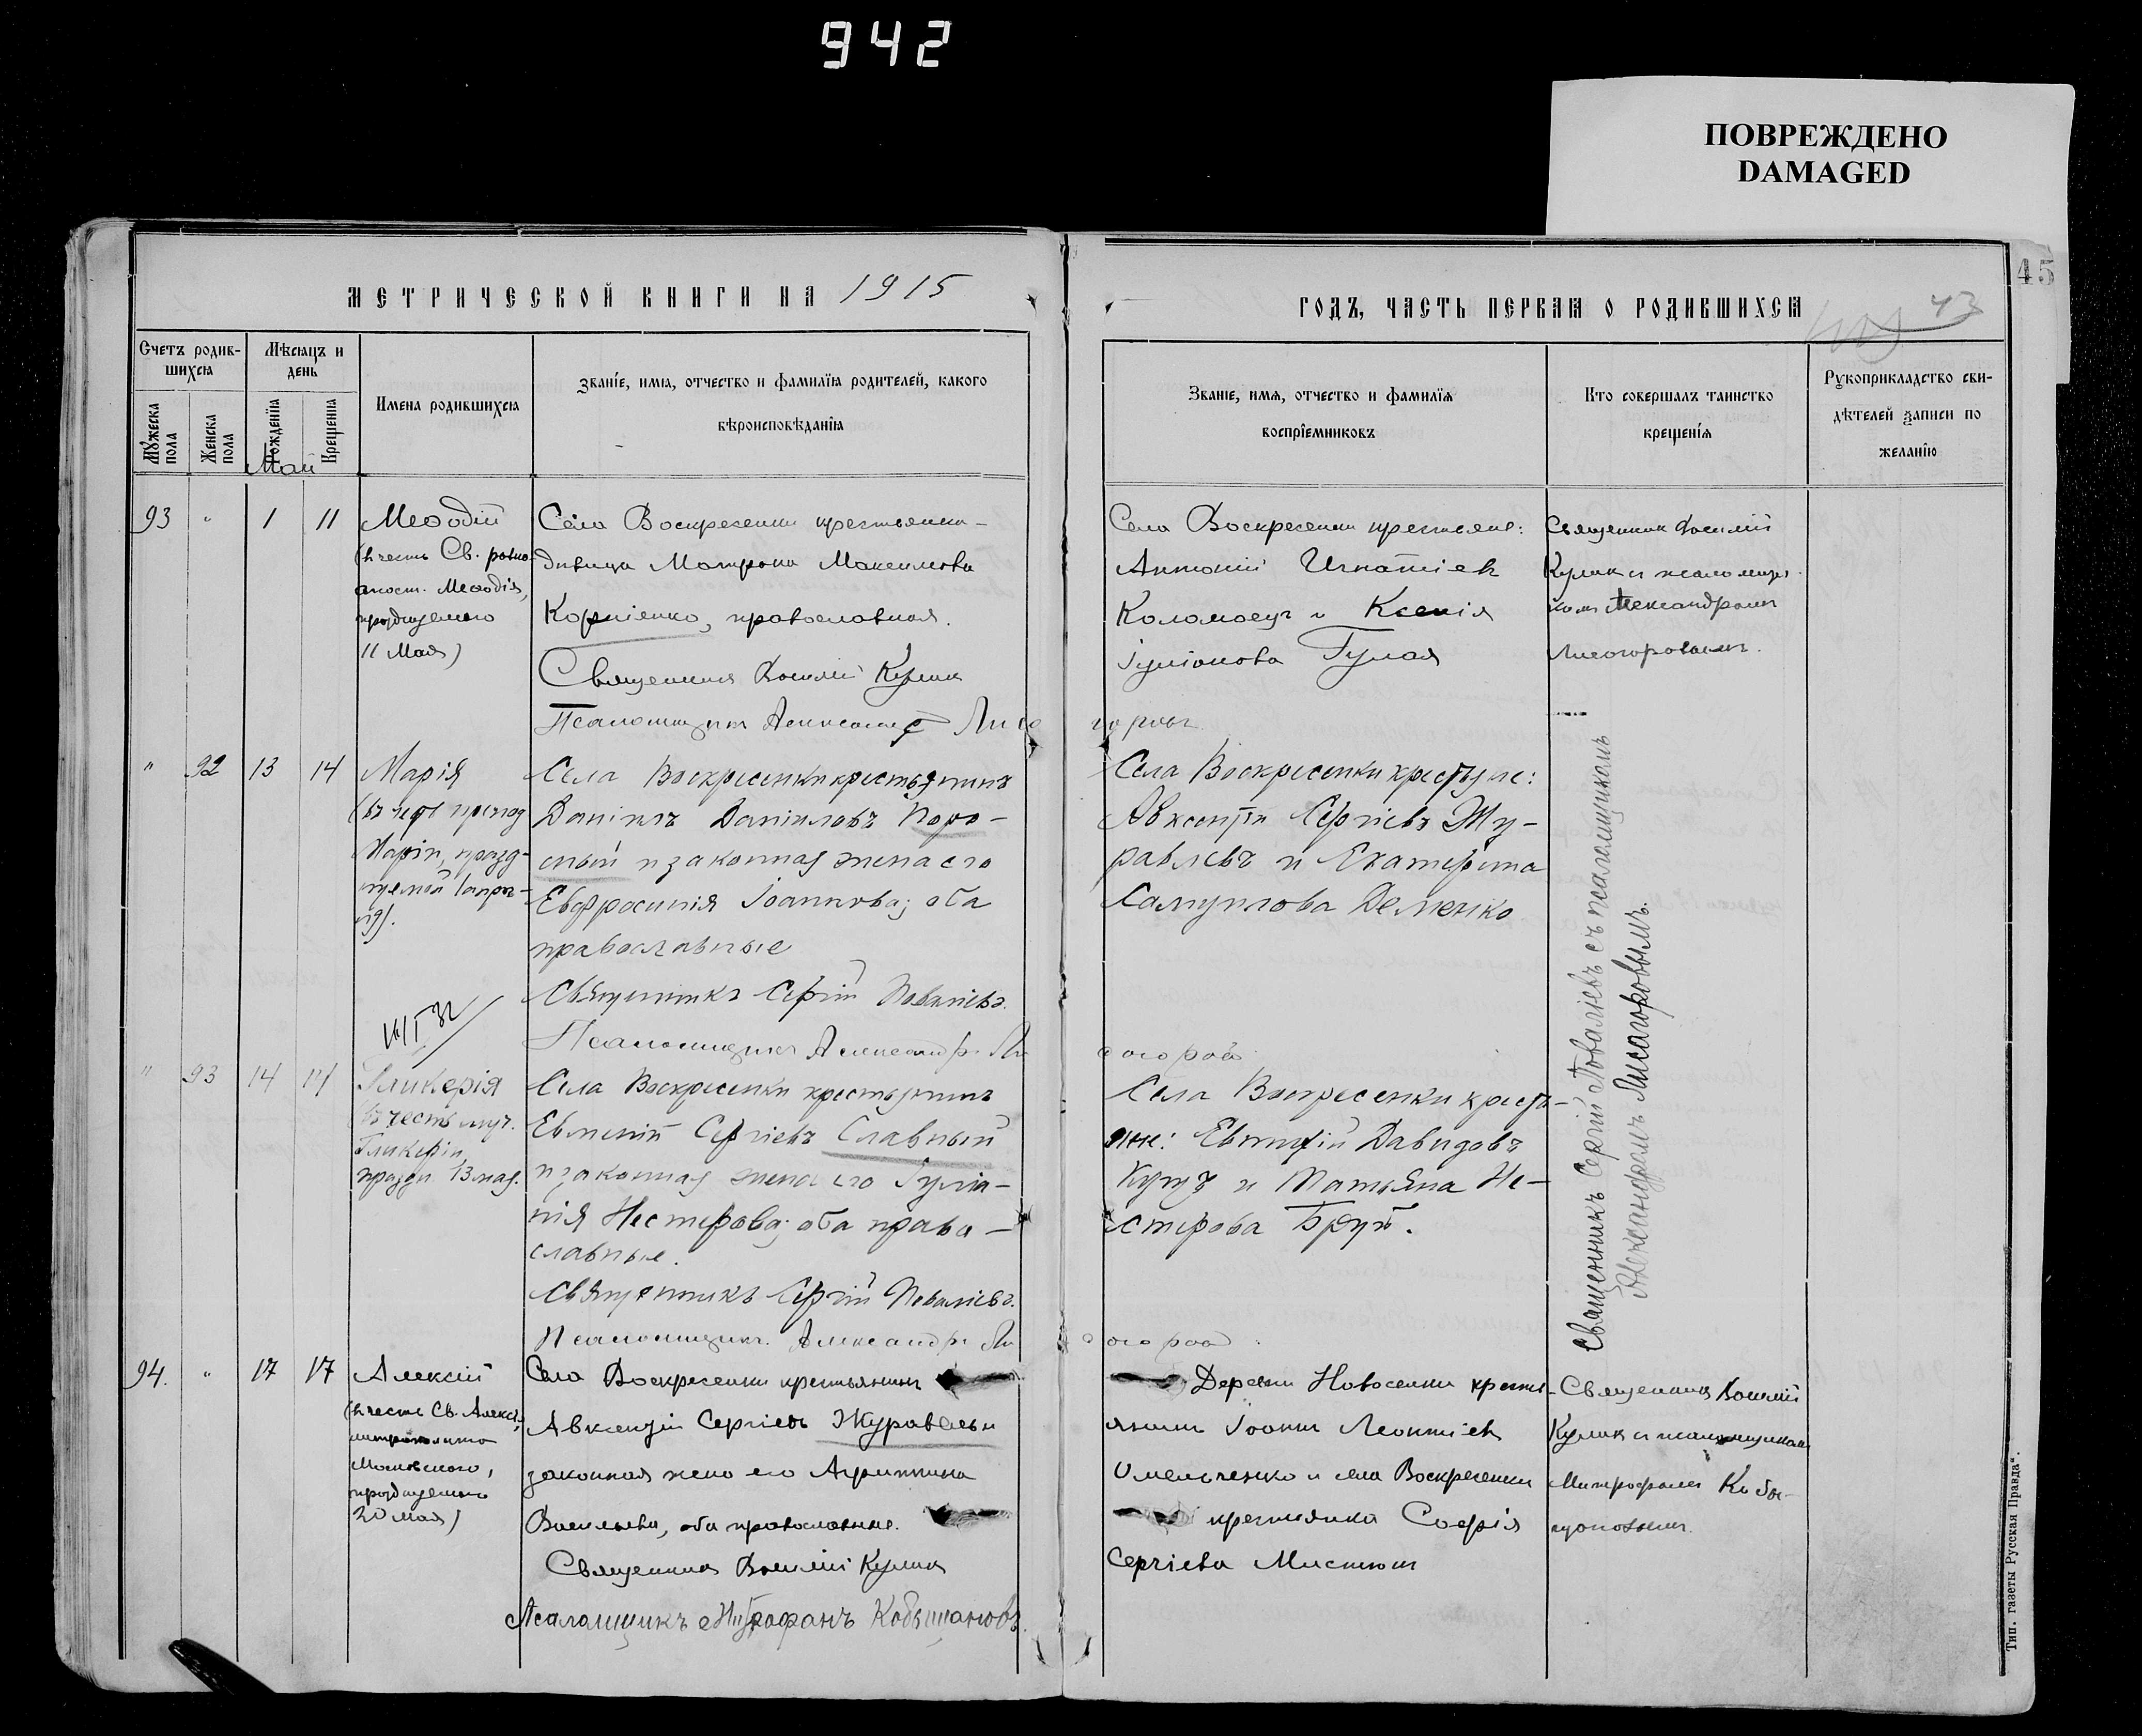 942
ПОВРЕЖДЕНО
DAMAGED
45
МЕТРИЧЕСКОЙ КНИГИ НА 1915
ГОДЪ, ЧАСТЬ ПЕРВАЯ О РОДИВШИХСЯ
43
Счетъ родив-
шихся
Мѣсяцъ и
день
Мужеска
пола
Женска
пола
Рожденія
Крещенія
Май
Имена родившихся
Званіе, имя, отчество и фамилія родителей, какого
вѣроисповѣданія
Званіе, имя, отчество и фамилія
воспріемниковъ
Кто совершалъ таинство
крещенія
Рукоприкладство сви-
дѣтелей записи по
желанію
93 " 1 11
Меѳодій
(въ честь Св. равно-
апост. Меѳодія,
празднуемаго
11 Мая)
Села Воскресенки крестьянка-
дѣвица Матрона Максимова
Корніенко, православная.
Священникъ Василій Куликъ
Псаломщикъ Александръ Лисо
горовъ
Села Воскресенки крестьяне:
Антоній Игнатіевъ
Коломоецъ и Ксенія
Іуліанова Гулая
Священникъ Василій
Куликъ и псаломщи-
комъ Александромъ
Лисогоровымъ.
" 92 13 14
Марія
(въ честь препод
Маріи, празд-
нуемой 1 апрѣ-
ля).
Села Воскресенки крестьянинъ
Даніилъ Даніиловъ
и законная жена его
Евфросинія Іоаннова; оба
православные
Священникъ Сергій Поваліевъ.
Псаломщикъ Александръ Ли
согоровъ
Села Воскресенки крестьяне:
Авксентій Сергіевъ Жу-
равлевъ и Екатерина
Самуилова Деменко
Священникъ Сергій Поваліевъ съ псаломщикомъ
Александромъ Лисогоровымъ.
" 93 14 14
Гликерія
(въ честь муч.
Гликеріи,
праздн. 13 мая.
Села Воскресенки крестьянинъ
Евмений Сергіевъ Славный
и законная жена его Іулiа-
нія Нестерова; оба право-
славные.
Священникъ Сергій Поваліевъ.
Псаломщикъ Александръ Ли
согоровъ
Села Воскресенки кресть-
яне: Евтихій Давидовъ
Куцъ и Татьяна Не-
стерова Брутъ.
94. " 17 17
Алексій
(въ честь Св. Алексія,
митрополита
Московскаго,
празднуемаго
20 мая)
Села Воскресенки крестьянинъ
Авксентій Сергіевъ Журавель и
законная жена его Агриппина
Васильева, оба православные.
Священникъ Василій Куликъ
Псаломщикъ Митрофанъ Кобыщановъ.
Деревни Новоселки кресть-
янинъ Іоаннъ Леонтіевъ
Омельченко и села Воскресенки
крестьянка Софія
Сергіева Мистюкъ
Священникъ Василій
Куликъ и псаломщикомъ
Митрофаномъ Кобы-
щановымъ.
Тип. газеты „Русская Правда“.